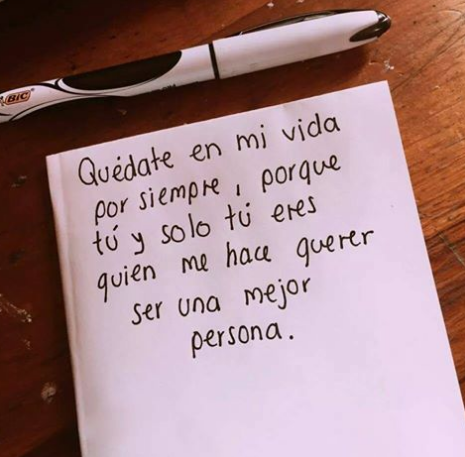 BIC
Quédate en mi vida
por siempre, porque
tú y solo tú eres
quien me hace querer
ser una mejor
persona.